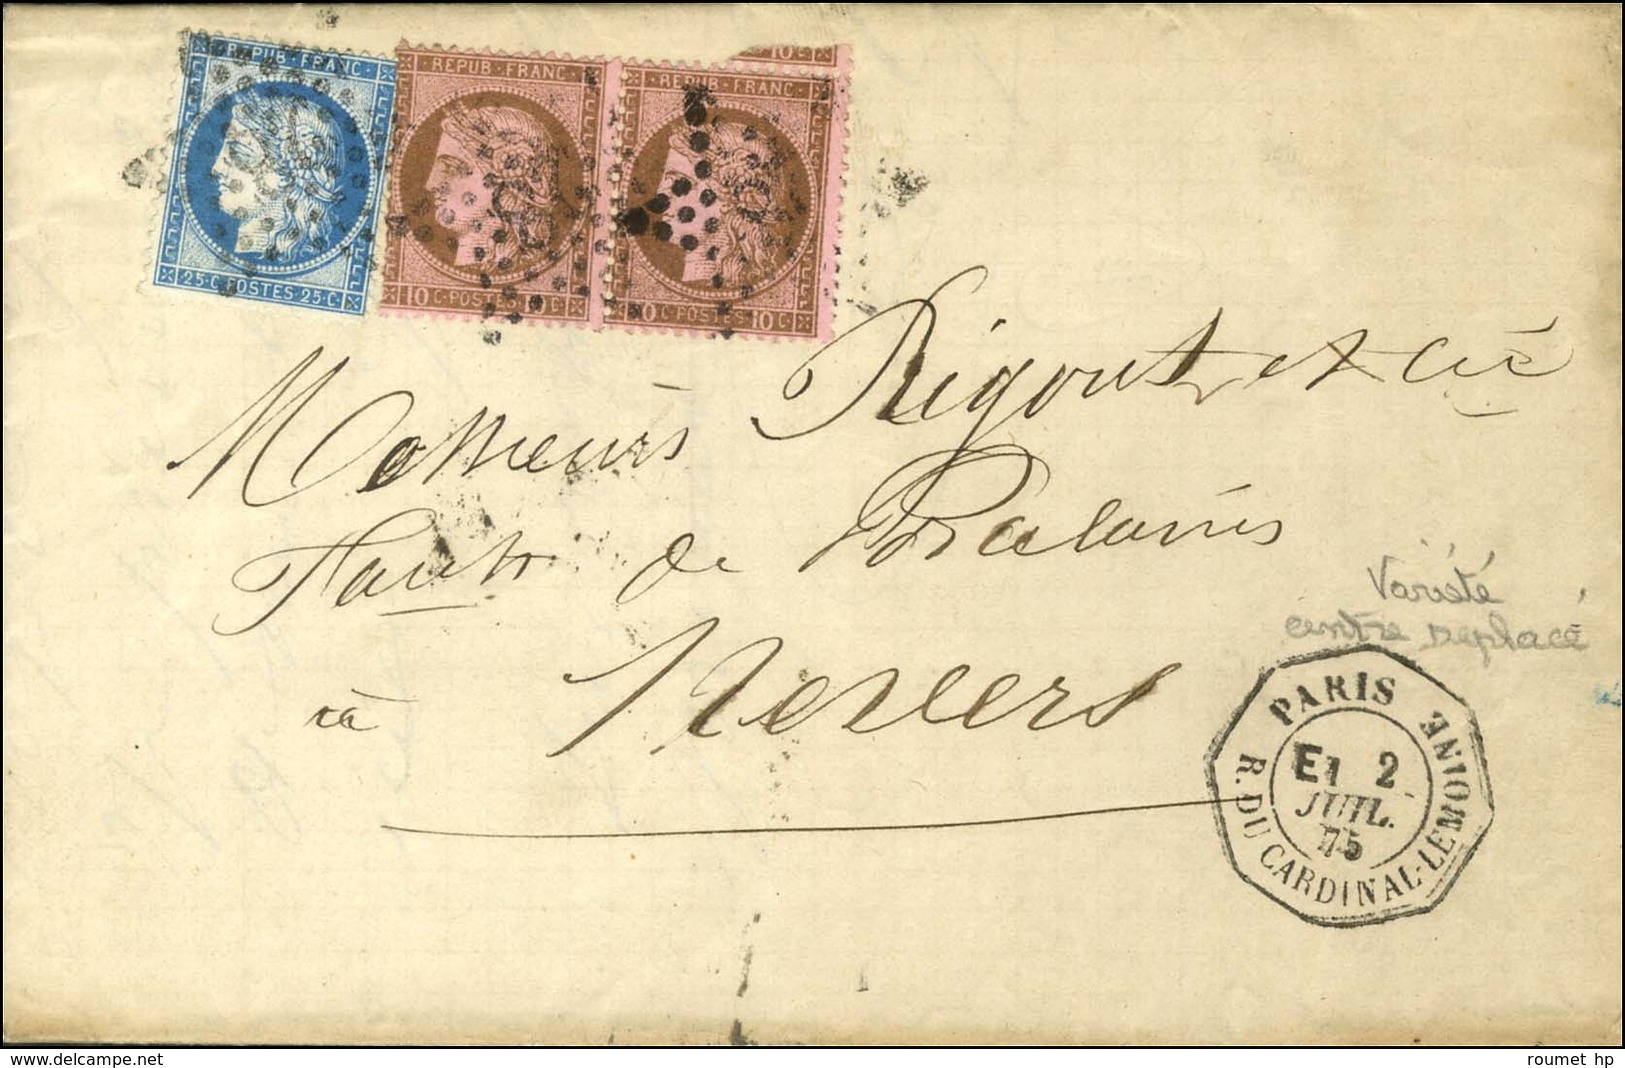 REPUB · FRANC
25 · C · POSTES · 25 · C
REPUB · FRANC
10 C · POSTES · 10 C
10 c
REPUB · FRANC
10 C · POSTES · 10 C
Messieurs Rigout et Cie
à Nevers
Variété
centre Deplacé
PARIS
R. DU CARDINAL-LEMOINE
E1 2
JUIL.
75
www.delcampe.net
roumet hp